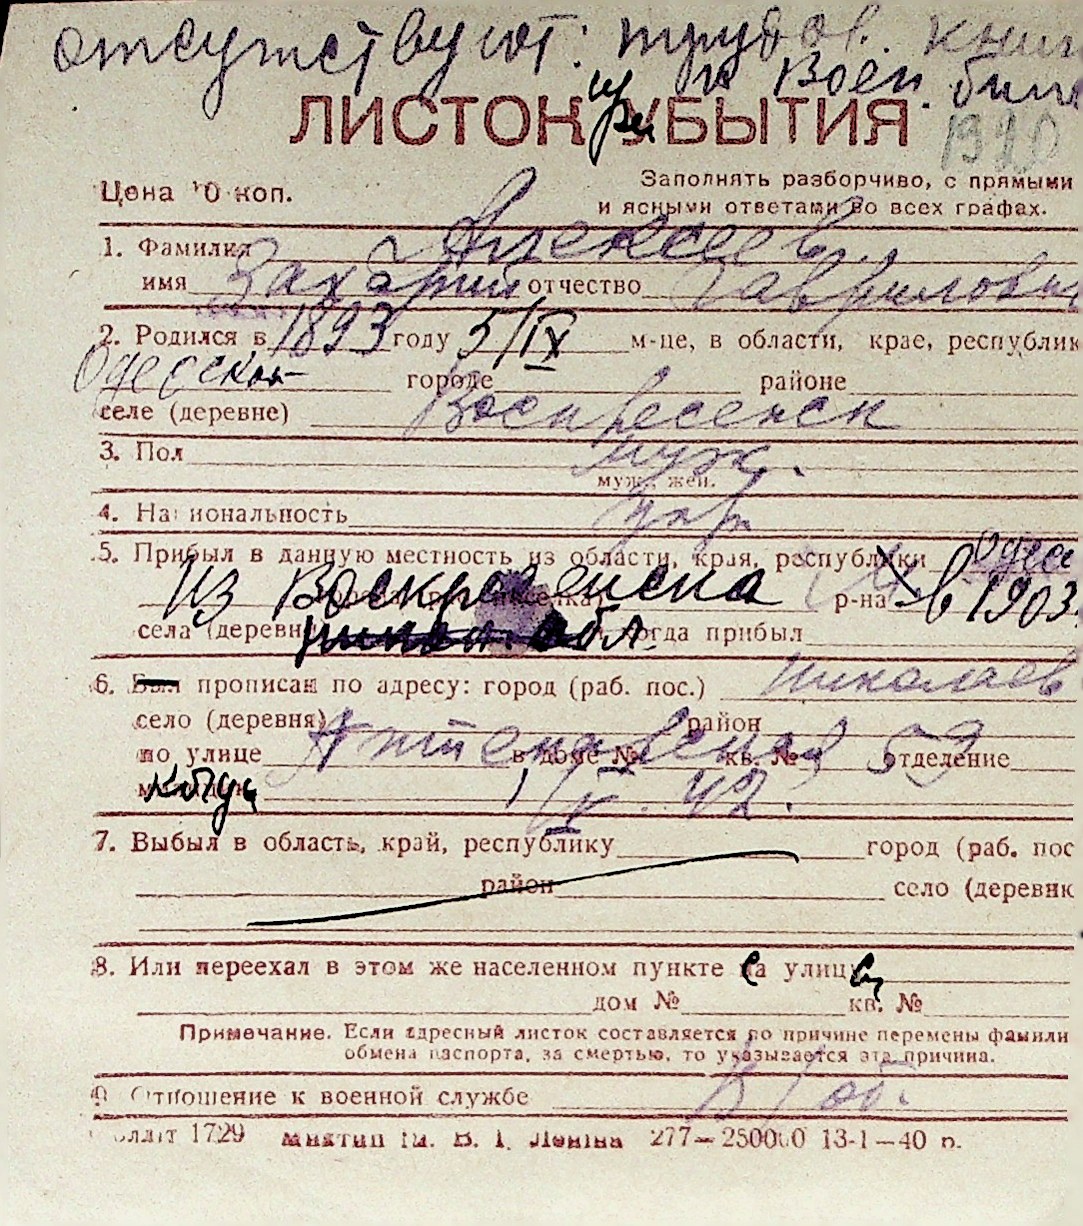 отсутствуют: трудов. книж
и воен. биле
при
ЛИСТОК УБЫТИЯ
1920
Цена 10 коп.
Заполнять разборчиво, с прямыми
и ясными ответами во всех графах.
1. Фамилия Алексеев
имя Захарий отчество Гаврилович
2. Родился в 1893 году 5/IX м-це, в области, крае, республик
Одесской городе районе
селе (деревне) Воскресенск
3. Пол муж.
муж., жен.
4. Национальность укр
5. Прибыл в данную местность из области, края, республики Одес
Из Воскресенска р-на в 1903
села (деревни) обл. когда прибыл
6. Был прописан по адресу: город (раб. пос.) Николаев
село (деревня) район
по улице в доме № кв. № 59 отделение
милиции 1/V. 42.
7. Выбыл в область, край, республику город (раб. пос
район село (деревн
8. Или переехал в этом же населенном пункте на улицу
дом № кв. №
Примечание. Если адресный листок составляется по причине перемены фамили
обмена паспорта, за смертью, то указывается эта причина.
9. Отношение к военной службе н/об.
1729 им. В. І. Леніна 277—250000 13-1—40 р.